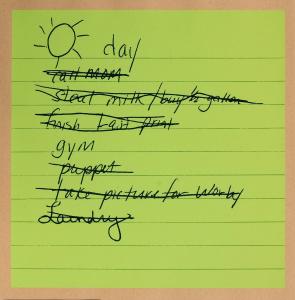 day
call mom
steal milk / buy ½ gallon
finish last print
gym
puppet
take picture for Worby
Laundry